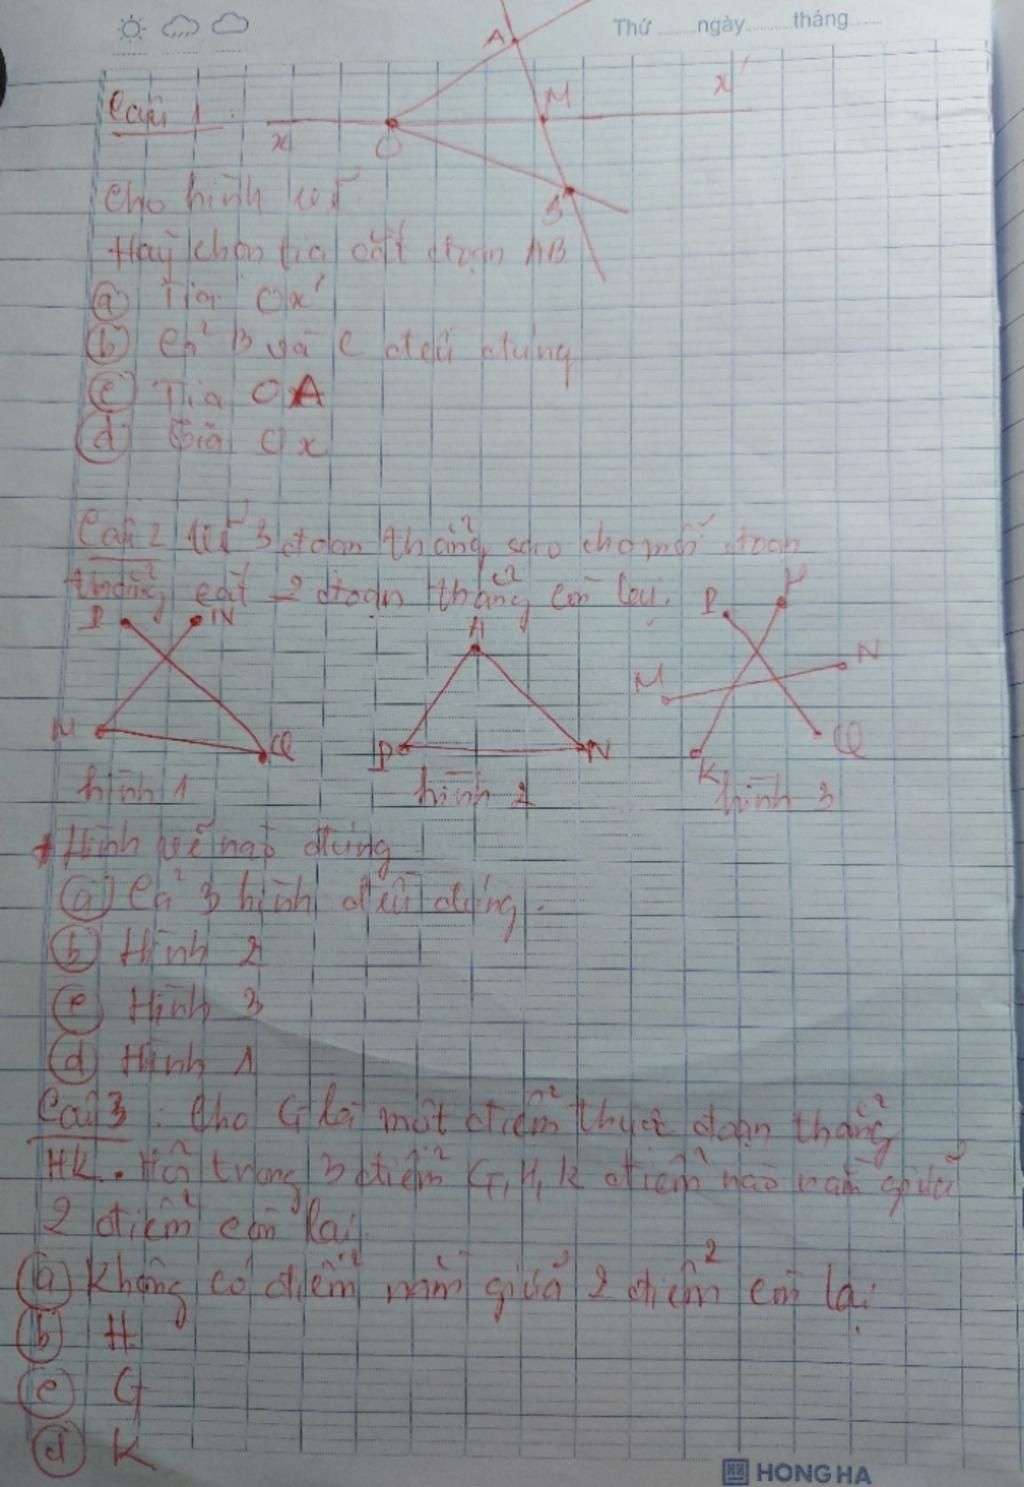 Thứ ........ngày.........tháng.......
A
Câu 1
M
x'
x
O
B
Cho hình vẽ
Hãy chọn tia cắt đoạn AB
a Tia Ox'
b Cả B và C đều đúng
c Tia OA
d Tia Ox
Câu 2 Vẽ 3 đoạn thẳng sao cho mỗi đoạn
thẳng cắt 2 đoạn thẳng còn lại.
P N A P H
M N
M Q P N K Q
hình 1 hình 2 hình 3
* Hình vẽ nào đúng
a Cả 3 hình đều đúng.
b Hình 2
c Hình 3
d Hình 1
Câu 3: Cho G là một điểm thuộc đoạn thẳng
HK. Hỏi trong 3 điểm G, H, K điểm nào nằm giữa
2 điểm còn lại
a Không có điểm nằm giữa 2 điểm còn lại
b H
c G
d K
HONG HA